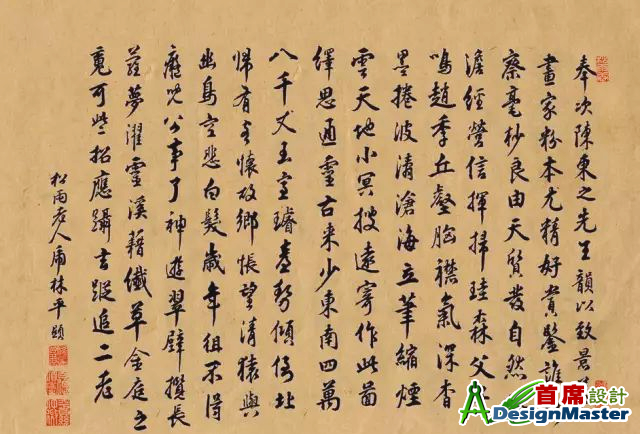 奉次陳東之先生韻以致景
畫家粉本尤精好賞鑒誰
察毫杪良由天質發自然
澹經營信揮掃珪森父
鳴趙季丘壑胸襟氣深杳
墨捲波濤滄海立筆縮煙
雲天地小冥搜遠寄作此圖
繹思通靈古來少東南四萬
八千丈玉室璿臺勢傾倚北
歸有客懷故鄉悵望清猿與
幽鳥空悲白髮歲年徂不得
公事了神遊翠壁攬長
蘿夢濯靈溪藉纖草金庭之
竟可些招應躡玄蹤追二老
松雨老人 林平題
首席設計
ADesignMaster